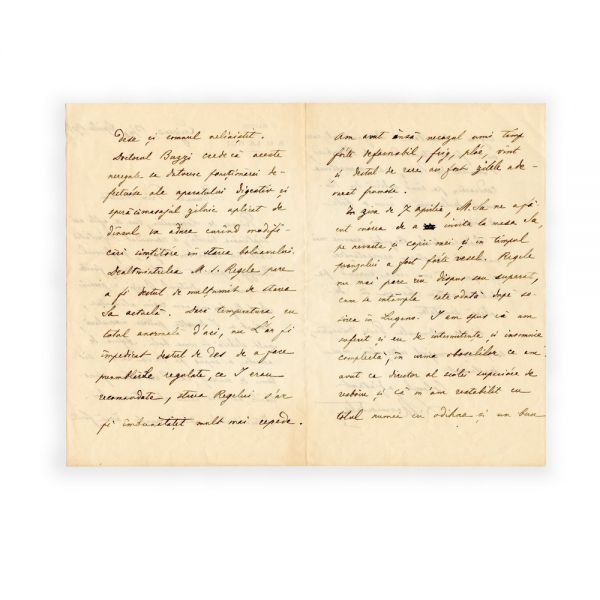 dese și somnul neliniștet.
Doctorul Buzzi crede că aceste
neregule se datoresc funcționarei de-
fectuóse ale aparatului digestiv și
speră că masajul zilnic aplicat de
dînsul va aduce curînd modifi-
cări simțitóre în starea bolnavului.
De altmintrelea M. S. Regele pare
a fi destul de mulțumit de starea
Sa actuală. Dacă temperatura cu
totul anormală d'aci, nu L'ar fi
împedicat destul de des de a face
preumblările regulate, ce I erau
recomandate, starea Regelui s'ar
fi îmbunătățit mult mai repede.
Am avut însă necazul unui timp
fórte defavorabil, frig, plóe, vînt
și destul de rare au fost zilele ade-
verat frumóse.
In ziua de 7 aprilie, M. Sa ne a fă-
cut onórea de a invita la masa Sa,
pe nevasta și copiii mei și în timpul
prânzului a fost fórte vesel. Regele
nu mai pare nu dispus sau superat,
cum se întâmpla câte odată după so-
sirea în Lugano. I am spus că am
suferit și eu de intermitențe și insomnie
complectă, în urma obóselilor ce am
avut ca director al scólei superióre de
resboiu și că m'am restabilit cu
totul numai cu odihna și un bun